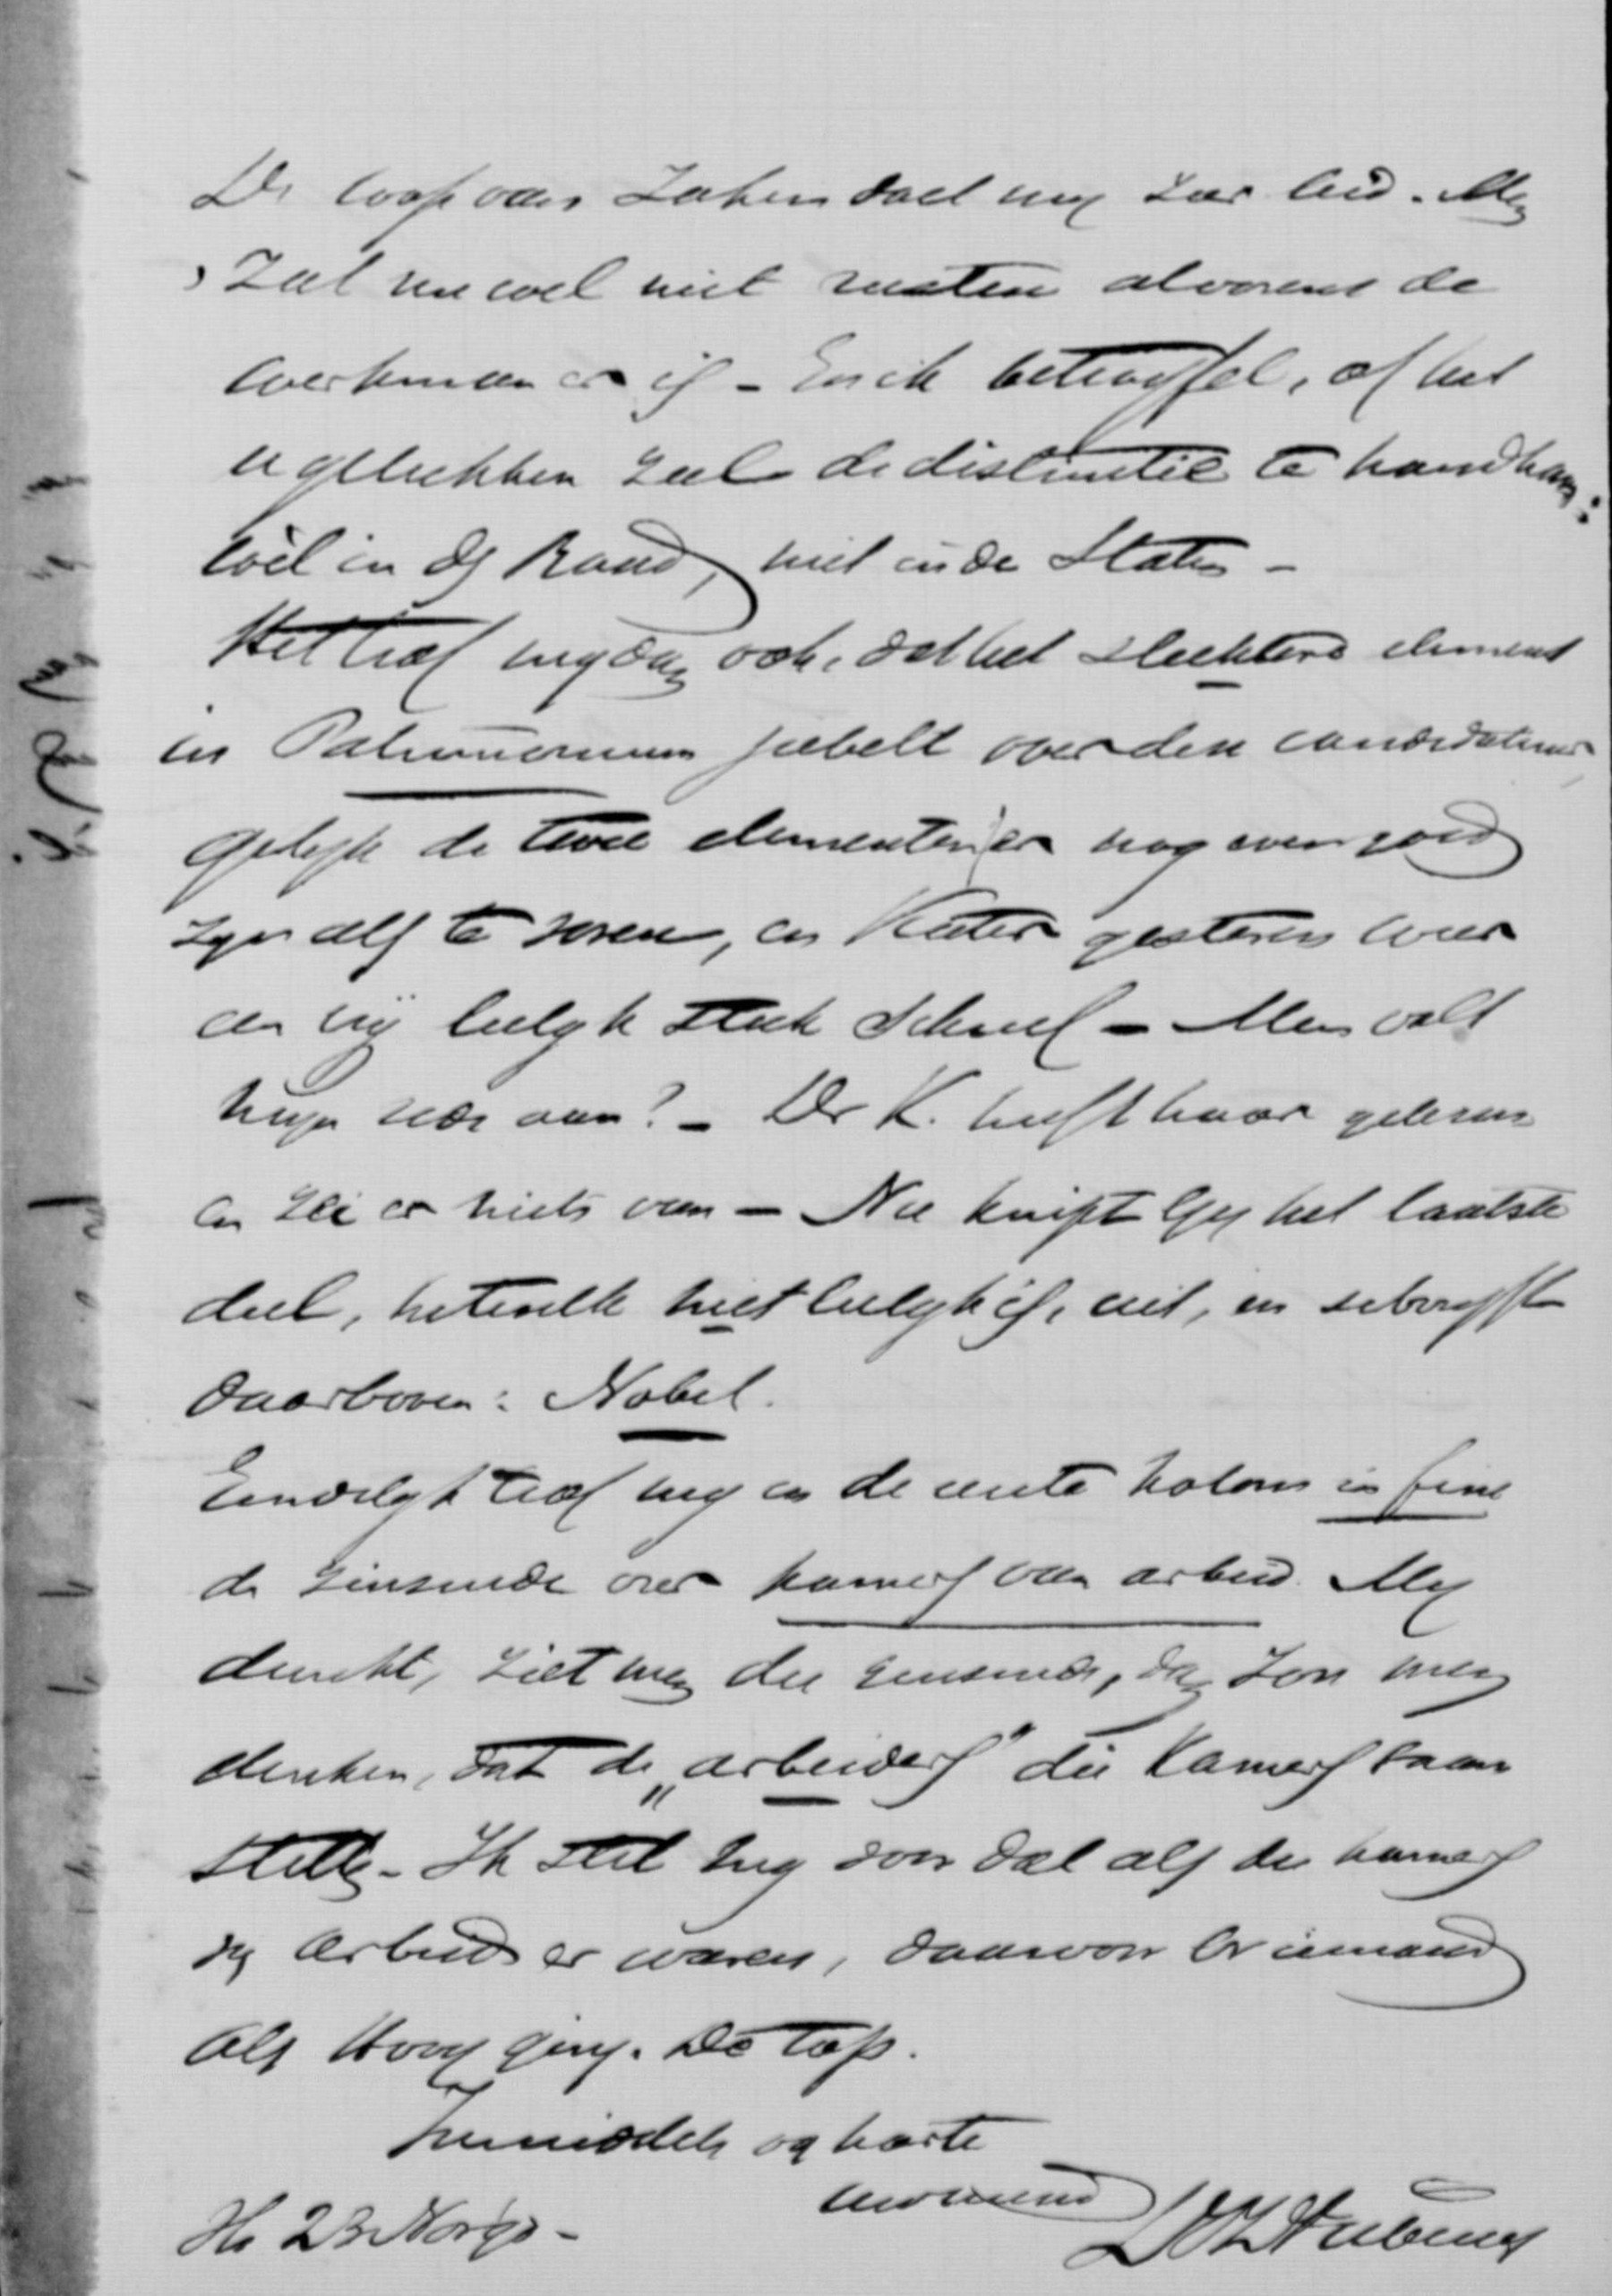 De loop van zaken doet mij zeer leed. Men
zal nu wel niet rusten alvorens de
werkman er is - En ik betwijfel, of het
u gelukken zal de distinctie te handhaven:
wèl in den Raad, niet in de Staten -
Het trof mij dan ook, dat het slechtere element
in Patrimonium jubelt over den candidatuur
gelijk de twee elementen er nog even goed
zijn als te voren, en Kater gisteren weer
een vrij leelijk stuk schreef - Men valt
mijn rede aan? - Dr K. heeft haar gelezen
en zei er niets van - Nu knipt Gij het laatste
deel, hetwelk niet leelijk is, uit, en schrijft
daarboven: Nobel.
Eindelijk trof mij in de eerste kolom in fine
de zinsnede over kamers van arbeid. Mij
dunkt, ziet men die zinsnede, dan zou men
denken, dat de „arbeiders" die Kamers
stellen - Ik stel mij voor dat als die kamers
van Arbeid er waren, daarvoor er iemand
als Hovy ging. De top.
Inmiddels van harte
uw vriend
Hs 23 Nov 93 -